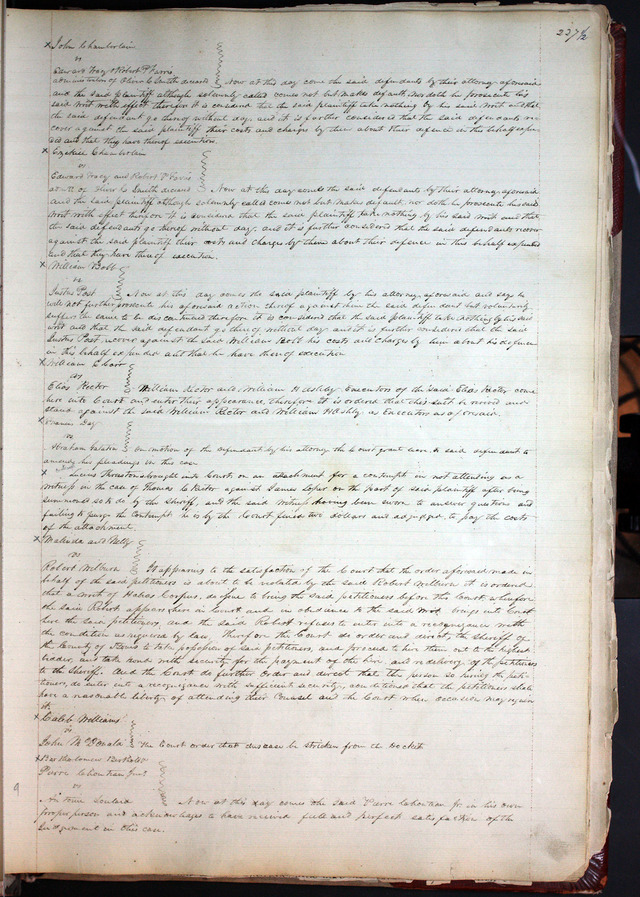 227½
x John Chamberlain
vs
Edward Tracy & Robert P Farris
administrators of Oliver C Smith deceased Now at this day come the said defendants by their attorney aforesaid
and the said plaintiff although solemnly called comes not but makes default, nor doth he prosecute his
said writ with effect therefore it is considered that the said plaintiff take nothing by his said writ and that
the said defendants go thereof without day, and it is further considered that the said defendants re-
cover against the said plaintiff their costs and charges by them about their defence in this behalf expen-
ded and that they have thereof execution.
x Ezekiel Chamberlain
vs
Edward Tracy and Robert P Farris
of Oliver C Smith deceased Now at this day comes the said defendants by their attorney aforesaid
and the said plaintiff although solemnly called comes not but makes default, nor doth he prosecute his said
writ with effect therefore it is considered that the said plaintiff take nothing by his said writ and that
the said defendants go thereof without day, and it is further considered that the said defendants recover
against the said plaintiff their costs and charges by them about their defence in this behalf expended
and that they have thereof execution.
x William Bobb
vs
Justus Post Now at this day comes the said plaintiff by his attorney aforesaid and says he
will not further prosecute his aforesaid action thereof against him the said defendant but voluntarily
suffers the same to be discontinued therefore it is considered that the said plaintiff take nothing by his said
writ and that the said defendant go thereof without day and it is further considered that the said
Justus Post recover against the said William Bobb his costs and charges by him about his defence
in this behalf expended and that he have thereof execution
x William C Carr
vs
Elias Rector William Rector and William H Ashley Executors of the said Elias Rector come
here into Court and enter their appearance, therefore it is ordered that this suit be revived and
stand against the said William Rector and William H Ashley as Executors as aforesaid.
x Francis Day
vs
Abraham Gallatin On motion of the defendant by his attorney the Court grant leave to said defendant to
amend his pleadings in this case
x Lucius Thruston brought into Court on an attachment for a contempt in not attending as a
witness in the case of Thomas C Rector against James Loper on the part of said plaintiff after being
summoned so to do by the Sheriff, and the said witness having been sworn to answer questions and
failing to purge the contempt he is by the Court fined two dollars and adjudged to pay the costs
of the attachment.
x Malinda and Nelly
vs
Robert Wilburn It appearing to the satisfaction of the Court that the order aforesaid made in
behalf of the said petitioners is about to be violated by the said Robert Wilburn it is ordered
that a writ of Habeas Corpus, do issue to bring the said petitioners before this Court, wherefore
the said Robert appears here in Court and in obedience to the said writ brings into Court
here the said petitioners, and the said Robert refuses to enter into a recognizance with
the condition as required by law, Therefore the Court do order and direct, the Sheriff of
the County of St Louis to take possession of said petitioners, and proceed to hire them out to the highest
bidder, and take bond with security for the payment of the hire, and redelivery of the petitioners
to the Sheriff. And the Court do further order and direct that the person so hiring the peti-
tioners, do enter into a recognizance with sufficient security, conditioned that the petitioners shall
have a reasonable liberty of attending their Counsel and the Court when occasion may require
it.
x Caleb Williams
vs
John McDonald The Court order that this case be stricken from the Docket
x Bartholomew Berthold
Pierre Chouteau Junr
vs
Antoine Soulard Now at this day comes the said Pierre Chouteau Jr. in his own
proper person and acknowledges to have received full and perfect satisfaction of the
Judgement in this case.